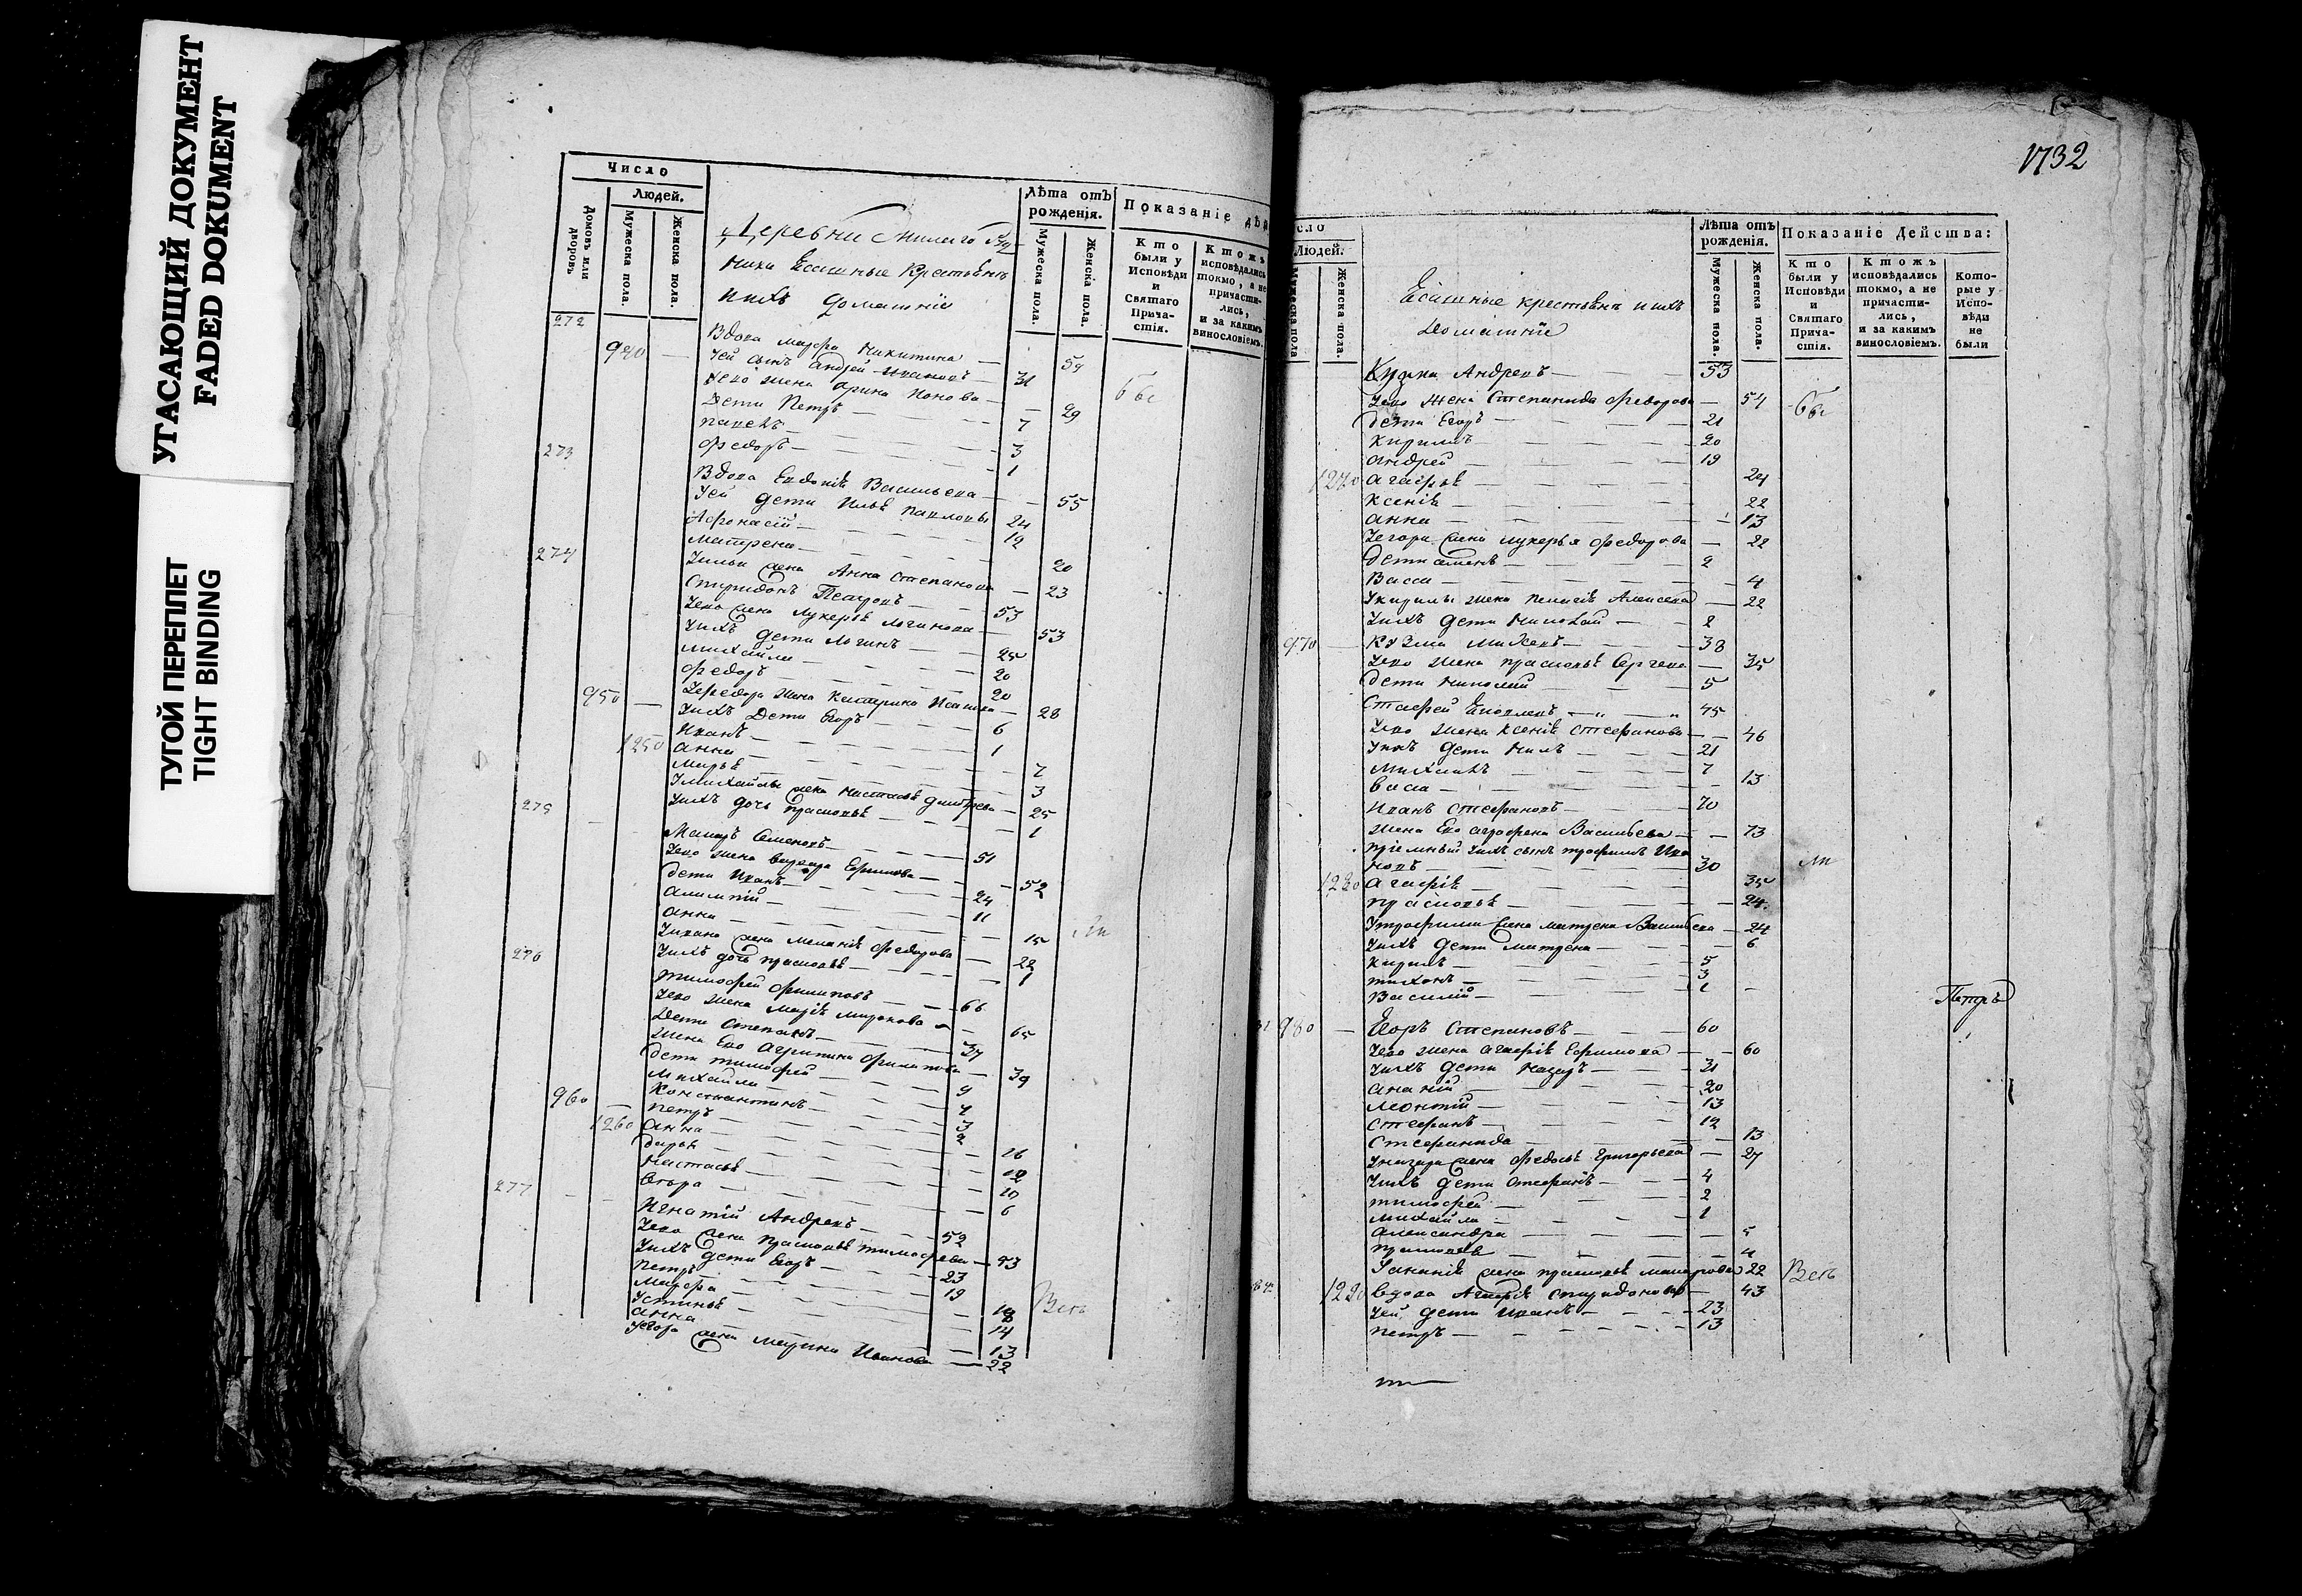 УГАСАЮЩИЙ ДОКУМЕНТ
FADED DOKUMENT
ТУГОЙ ПЕРЕПЛЕТ
TIGHT BINDING
Число
Людей.
Домовъ или дворовъ
Мужеска пола.
Женска пола.
Деревни Гнилаго
Ѣсашные Крестьянъ
ихъ домашніе
Лѣта отъ рожденія.
Мужеска пола.
Женска пола.
Показаніе дѣ
Кто были у Исповѣди и Святаго Прича-стія.
Ктожъ исповѣдались токмо, а не причасти-лись, и за какимъ винословіемъ.
272
Вдова Марфа Никитина — 59
940 — Уей сынъ Андрей Ивановъ — 31
Уево жена Арина Ионова — 29
Дети Петръ — 7
Павелъ — 3
Федоръ — 1
бы
273
Вдова Евдокіѣ Васильева — 55
Уей дети Ильѣ Павловы 24
Афонасій — 12
Матрена — 20
Уильи жена Анна Степанова — 23
274
Спиридонъ Петровъ — 53
Уево жена Лукерьѣ Логинова — 53
Уихъ дети Логинъ — 25
Михайла — 20
Федоръ — 20
Уфедора жена Катерина — 28
950 — Уихъ Дети Егоръ — 6
Иванъ — 1
1250 Анна — 7
Марьѣ — 3
Умихайлы жена Настасьѣ Дмитрева — 25
Уихъ дочь Прасковьѣ — 1
275
Макаръ Семеновъ — 51
Уево жена Варвара Ефимова — 52
Дети Иванъ — 24
Алимпій — 11
Анна — 15
Уивана жена Меланіѣ Федорова — 22
Уихъ дочь Прасковьѣ — 1
ли
276
Тимофей Филиповъ — 66
Уево жена Маріѣ Миронова — 65
Дети Степанъ — 37
Жена Ево Агрипина Филатова — 39
Дети Тимофей — 9
Михайла — 7
960 — Константинъ — 3
Петръ — 2
1260 Анна — 16
Дарьѣ — 12
Настасьѣ — 10
Ѳекла — 6
277
Игнатій Андревъ — 52
Уево жена Прасковьѣ Тимофеева — 53
Уихъ дети Егоръ — 23
Петръ — 19
Марфа — 18
Устиньѣ — 14
Анна — 13
Уегора жена Марина Иванова — 22
Весь
1732
сло
Людей.
Мужеска пола
Женска пола.
Ѣсашные крестьянъ ихъ
домашніе
Лѣта отъ рожденія.
Мужеска пола.
Женска пола.
Показаніе Действа:
Кто были у Исповѣди и Святаго Прича-стія.
Ктожъ исповѣдались токмо, а не причасти-лись, и за какимъ винословіемъ.
Кото-рые у Испо-вѣди не были
Кузма Андревъ — 53
Уево жена Степанида Федорова — 54
бы
Дети Егоръ — 21
Кирилъ — 20
Андрей — 19
1270 Агафьѣ — 24
Ксеніѣ — 22
Анна — 13
Уегора жена Лукерья Федорова — 22
Дети Семенъ — 2
Васса — 4
Укирилы жена Пелагіѣ Алексева — 22
Уихъ дети Николай — 2
970 — Кузма Михевъ — 38
Уево жена Прасковьѣ Сергева — 35
Дети Николай — 5
Стафей Яковлевъ — 45
Уево жена Ксеніѣ Стефанова — 46
Уихъ дети Нилъ — 21
Михаилъ — 7
Васа — 13
Иванъ Стефановъ — 70
Жена Ево Аграфена Васильева — 73
Пріемный Уихъ сынъ Трофимъ Ива
новъ — 30
ли
1280 Агафіѣ — 35
Прасковьѣ — 24
Утрофима жена Матрена Васильева — 24
Уихъ дети Матрена — 6
Кирилъ — 5
Тихонъ — 3
Василій — 1
Петръ
980 — Егоръ Степановъ — 60
Уево жена Агафіѣ Ефимова — 60
Уихъ дети Назаръ — 31
Ананій — 20
Леонтій — 13
Стефанъ — 12
Стефанида — 13
Уназара жена Федосьѣ Григорьева — 27
Уихъ дети Стефанъ — 4
Тимофей — 2
Михайла — 1
Александра — 5
Прасковьѣ — 4
Уананіѣ жена Прасковьѣ Макарова 22
Весь
1290 Вдова Агафіѣ Спиридонова — 43
Уей дети Иванъ — 23
Петръ — 13